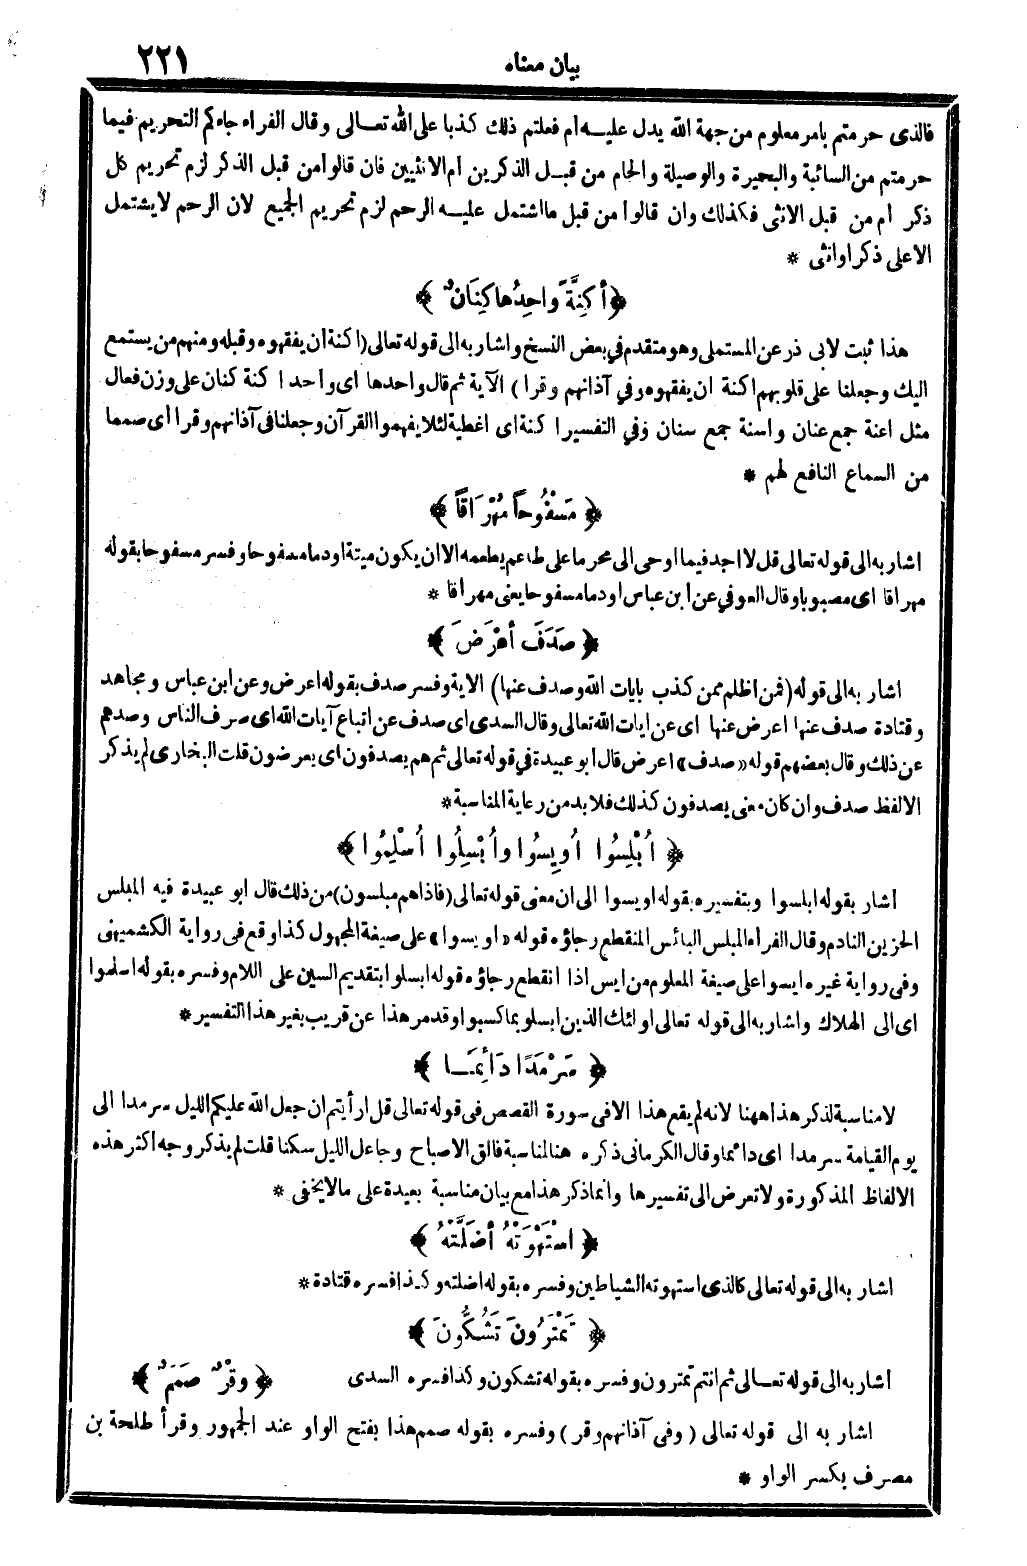 بيان معناه
٢٢١
فالذى حرمتم بامر معلوم من جهة الله يدل عليه ام فعلتم ذلك كذبا على الله تعالى وقال الفراء جاءكم التحريم فيما
حرمتم من السائبة والبحيرة والوصيلة والحام من قبل الذكرين ام الانثيين فان قالوا من قبل الذكر لزم تحريم كل
ذكر ام من قبل الانثى فكذلك وان قالوا من قبل ما اشتمل عليه الرحم لزم تحريم الجميع لان الرحم لا يشتمل
الا على ذكر او انثى *
﴿ أكِنَّةً واحِدُها كِنَانٌ ﴾
هذا ثبت لابى ذر عن المستملى وهو متقدم في بعض النسخ واشار به الى قوله تعالى (اكنة ان يفقهوه وقبله ومنهم من يستمع
اليك وجعلنا على قلوبهم اكنة ان يفقهوه وفي آذانهم وقرا ) الآية ثم قال واحدها اى واحد ا كنة كنان على وزن فعال
مثل اعنة جمع عنان واسنة جمع سنان وفي التفسير ا كنة اى اغطية لئلا يفهموا القرآن وجعلنا فى آذانهم وقرا اى صمما
من السماع النافع لهم *
﴿ مَسْفُوحاً مُهْرَاقاً ﴾
اشار به الى قوله تعالى قل لا اجد فيما اوحى الى محرما على طاعم يطعمه الا ان يكون ميتة او دما مسفوحا وفسر مسفوحا بقوله
مهراقا اى مصبوبا وقال العوفي عن ابن عباس او دما مسفوحا يعنى مهراقا *
﴿ صَدَفَ أعْرَضَ ﴾
اشار به الى قوله (فمن اظلم ممن كذب بايات الله وصدف عنها) الاية وفسر صدف بقوله اعرض وعن ابن عباس ومجاهد
وقتادة صدف عنها اعرض عنها اى عن ايات الله تعالى وقال السدى اى صدف عن اتباع آيات الله اى صرف الناس وصدهم
عن ذلك وقال بعضهم قوله «صدف» اعرض قال ابو عبيدة في قوله تعالى ثم هم يصدفون اى يعرضون قلت البخارى لم يذكر
الا لفظ صدف وان كان معنى يصدفون كذلك فلا بد من رعاية المناسبة *
﴿ أُبْلِسُوا أُويِسُوا وأُبْسِلُوا أُسْلِمُوا ﴾
اشار بقوله ابلسوا وبتفسيره بقوله اويسوا الى ان معنى قوله تعالى (فاذا هم مبلسون) من ذلك قال ابو عبيدة فيه المبلس
الحزين النادم وقال الفراء المبلس البائس المنقطع رجاؤه قوله «اويسوا» على صيغة المجهول كذا وقع فى رواية الكشميهنى
وفى رواية غيره ايسوا على صيغة المعلوم من ايس اذا انقطع رجاؤه قوله ابسلوا بتقديم السين على اللام وفسره بقوله اسلموا
اى الى الهلاك واشار به الى قوله تعالى اولئك الذين ابسلو بما كسبوا وقد مر هذا عن قريب بغير هذا التفسير *
﴿ سَرْمَدًا دَائِمًا ﴾
لا مناسبة لذكر هذا ههنا لانه لم يقع هذا الا فى سورة القصص فى قوله تعالى قل ارأيتم ان جعل الله عليكم الليل سرمدا الى
يوم القيامة سرمدا اى دائما وقال الكرمانى ذكره هنا لمناسبة فالق الاصباح وجاعل الليل سكنا قلت لم يذكر وجه اكثر هذه
الالفاظ المذكورة ولا تعرض الى تفسيرها وانما ذكر هذا مع بيان مناسبة بعيدة على ما لا يخفى *
﴿ اسْتَهْوَتْهُ أضَلَّتْهُ ﴾
اشار به الى قوله تعالى كالذى استهوته الشياطين وفسره بقوله اضلته وكذا فسره قتادة *
﴿ تَمْتَرُونَ تَشُكُّونَ ﴾
اشار به الى قوله تعالى ثم انتم تمترون وفسره بقوله تشكون وكذا فسره السدى ﴿ وقْرٌ صَمَمٌ ﴾
اشار به الى قوله تعالى ( وفى آذانهم وقر ) وفسره بقوله صمم هذا بفتح الواو عند الجمهور وقرأ طلحة بن
مصرف بكسر الواو *